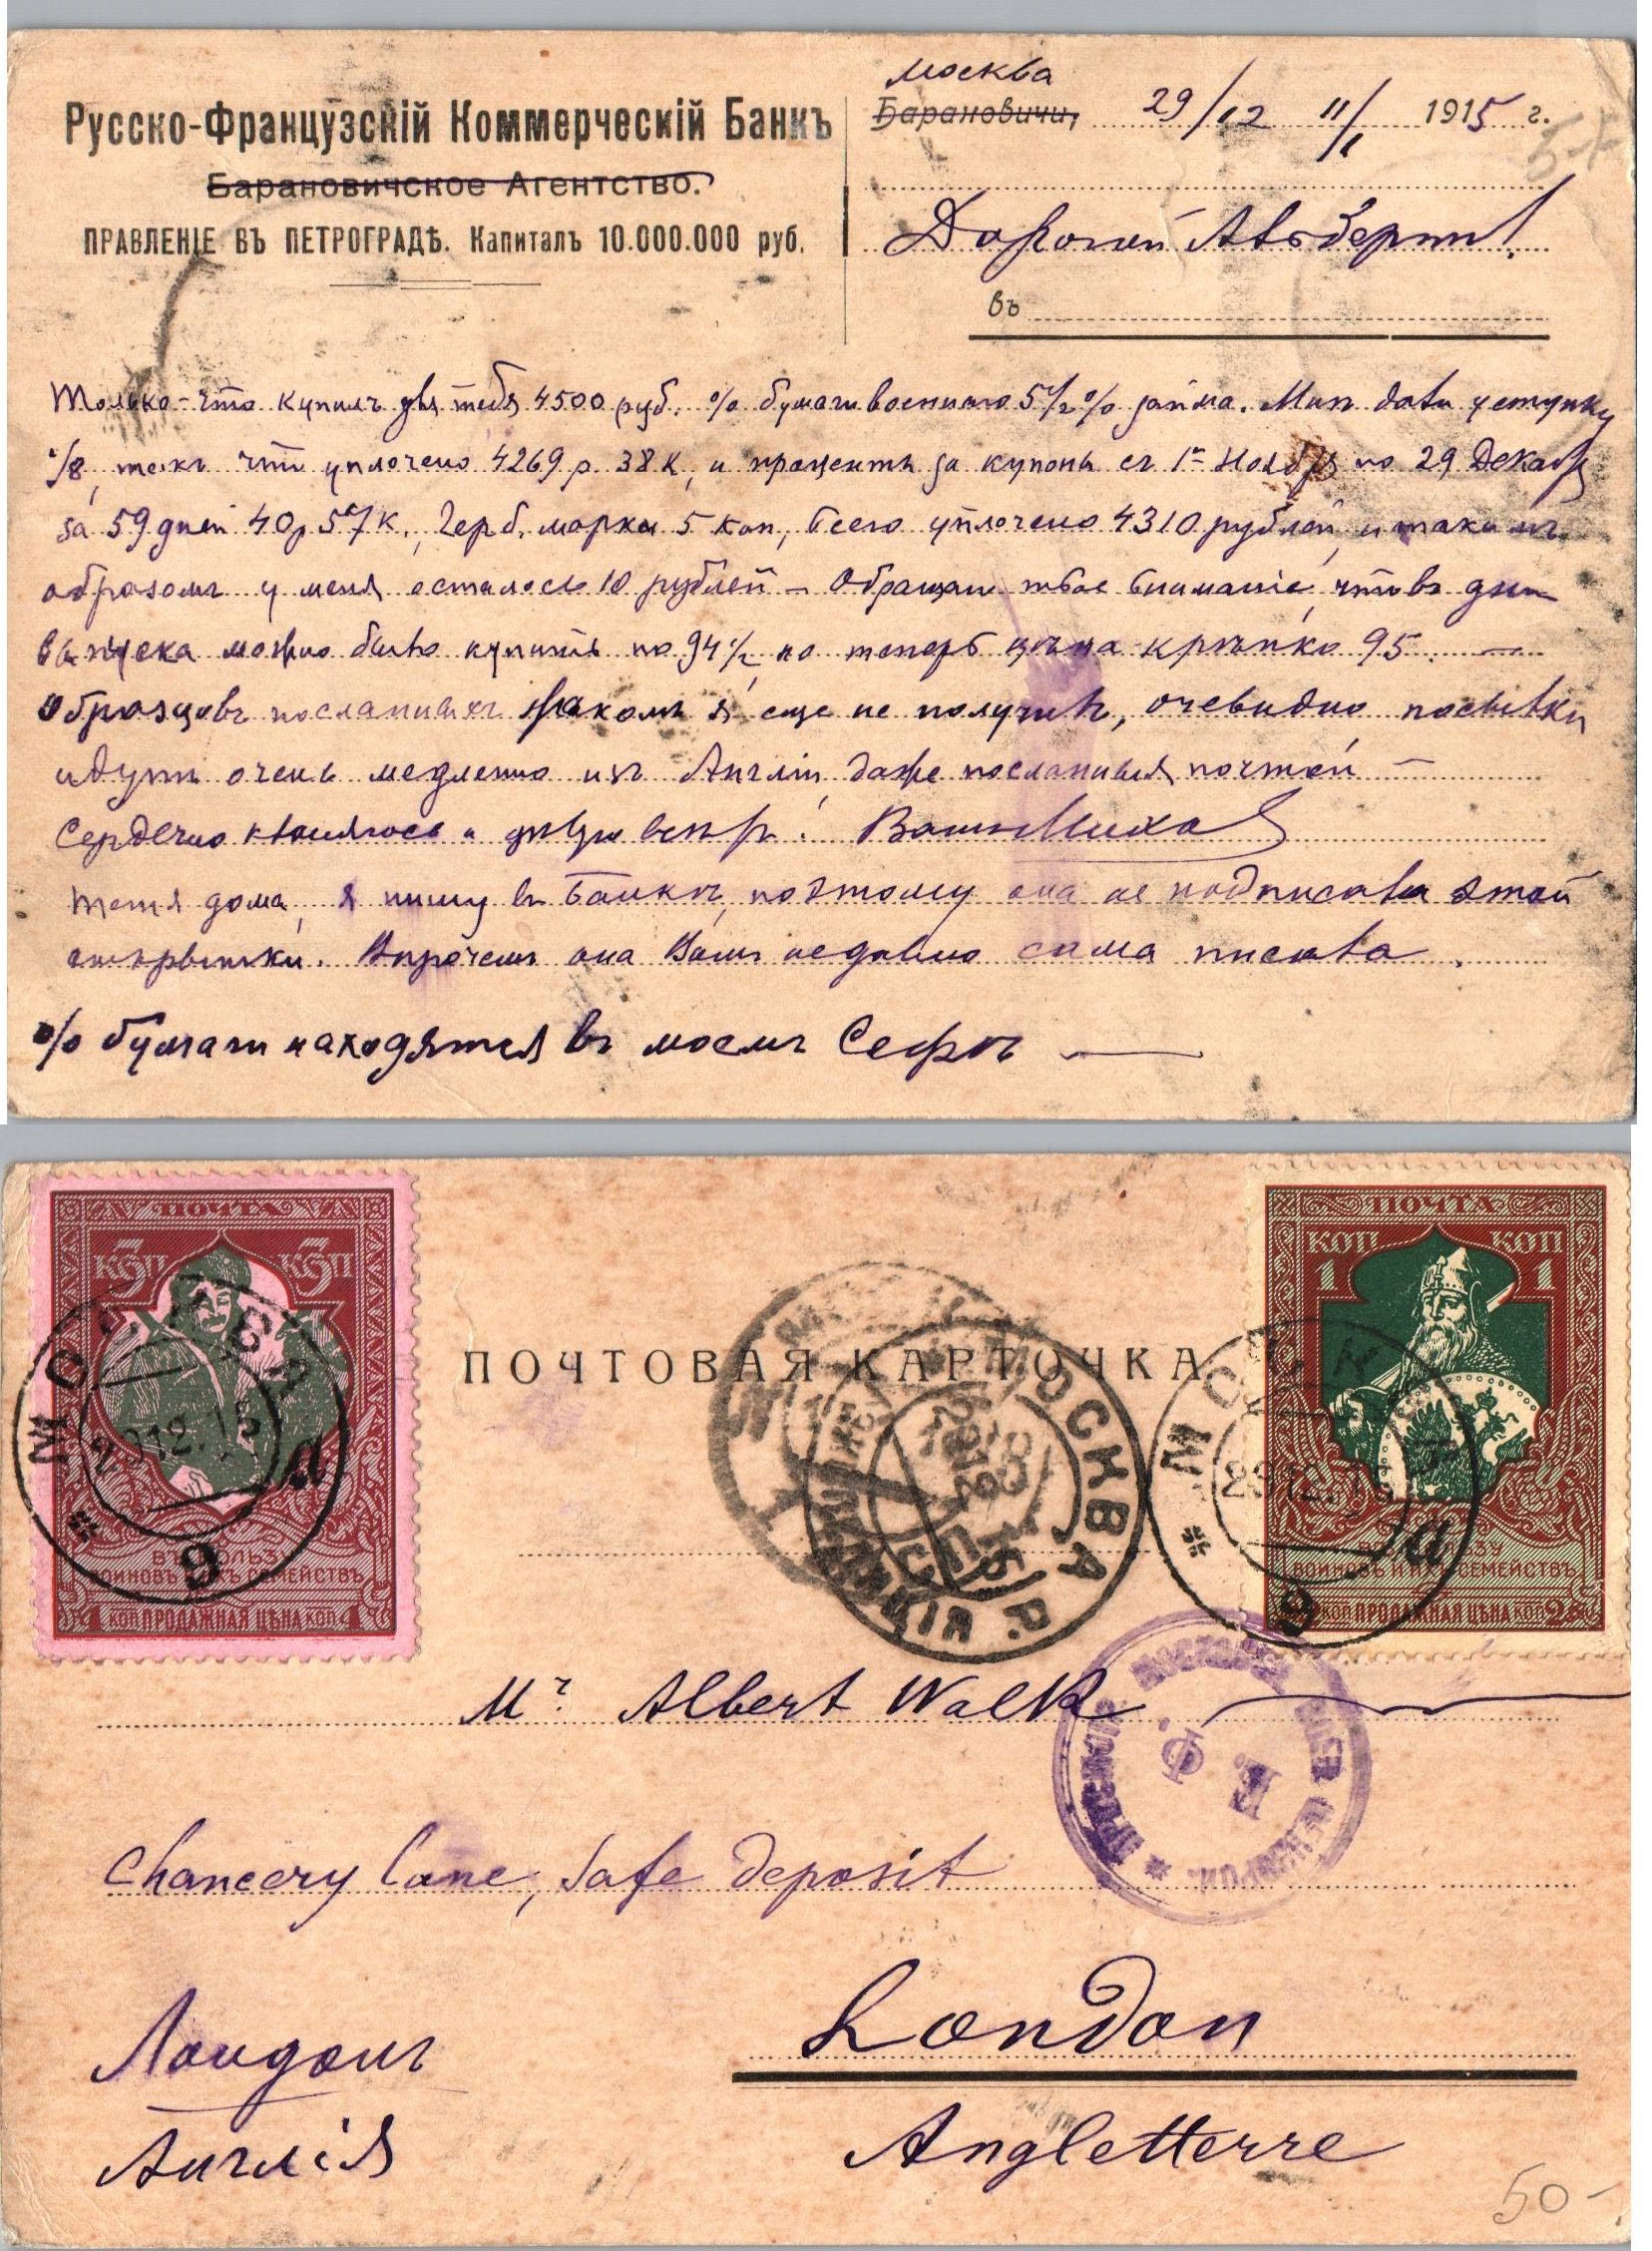 Москва
Русско-Французскій Коммерческій Банкъ
Барановичи, 29/12 11/1 1915 г.
Барановичское Агентство.
ПРАВЛЕНІЕ ВЪ ПЕТРОГРАДѢ. Капиталъ 10.000.000 руб.
Дорогой Альбертъ!
въ
Только-что купилъ для тебя 4500 руб. % бумаги военнаго 5½% займа. Мнѣ дали уступку
⅛, такъ что уплочено 4269 р. 38 к, и проценты за купонъ съ 1го Ноября по 29 Декабр
за 59 дней 40 р 57 к., Герб. марки 5 коп, всего уплочено 4310 рублей, и такимъ
образомъ у меня осталось 10 рублей – Обращаю твое вниманіе, что въ дни
выпуска можно было купить по 94½, но теперь цѣна крѣпко 95. —
Образцовъ посланныхъ я еще не получилъ, очевидно посылки
идутъ очень медленно изъ Англіи, даже посланныя почтой —
Сердечно кланяюсь и цѣлую всѣхъ! Вашъ
Тетя дома, я пишу въ Банкѣ, поэтому она не подписала этой
открытки. Впрочемъ она Вамъ недавно сама писала.
% бумаги находятся въ моемъ Сефѣ —
ПОЧТА
3 КОП 3 КОП
ВЪ ПОЛЬЗУ
ВОИНОВЪ И ИХЪ СЕМЕЙСТВЪ
4 КОП ПРОДАЖНАЯ ЦѢНА КОП 4
МОСКВА
29.12.15
а
9
ПОЧТОВАЯ КАРТОЧКА
МОСКВА
29.12.15
ПОЧТА
КОП 1 КОП 1
ВЪ ПОЛЬЗУ
ВОИНОВЪ И ИХЪ СЕМЕЙСТВЪ
КОП ПРОДАЖНАЯ ЦѢНА КОП 2
МОСКВА
29.12.15
а
9
Mr Albert Walk
Е. Ф.
Chancery Lane, Safe deposit
London
Лондонъ
Англія
Angletterre
50-